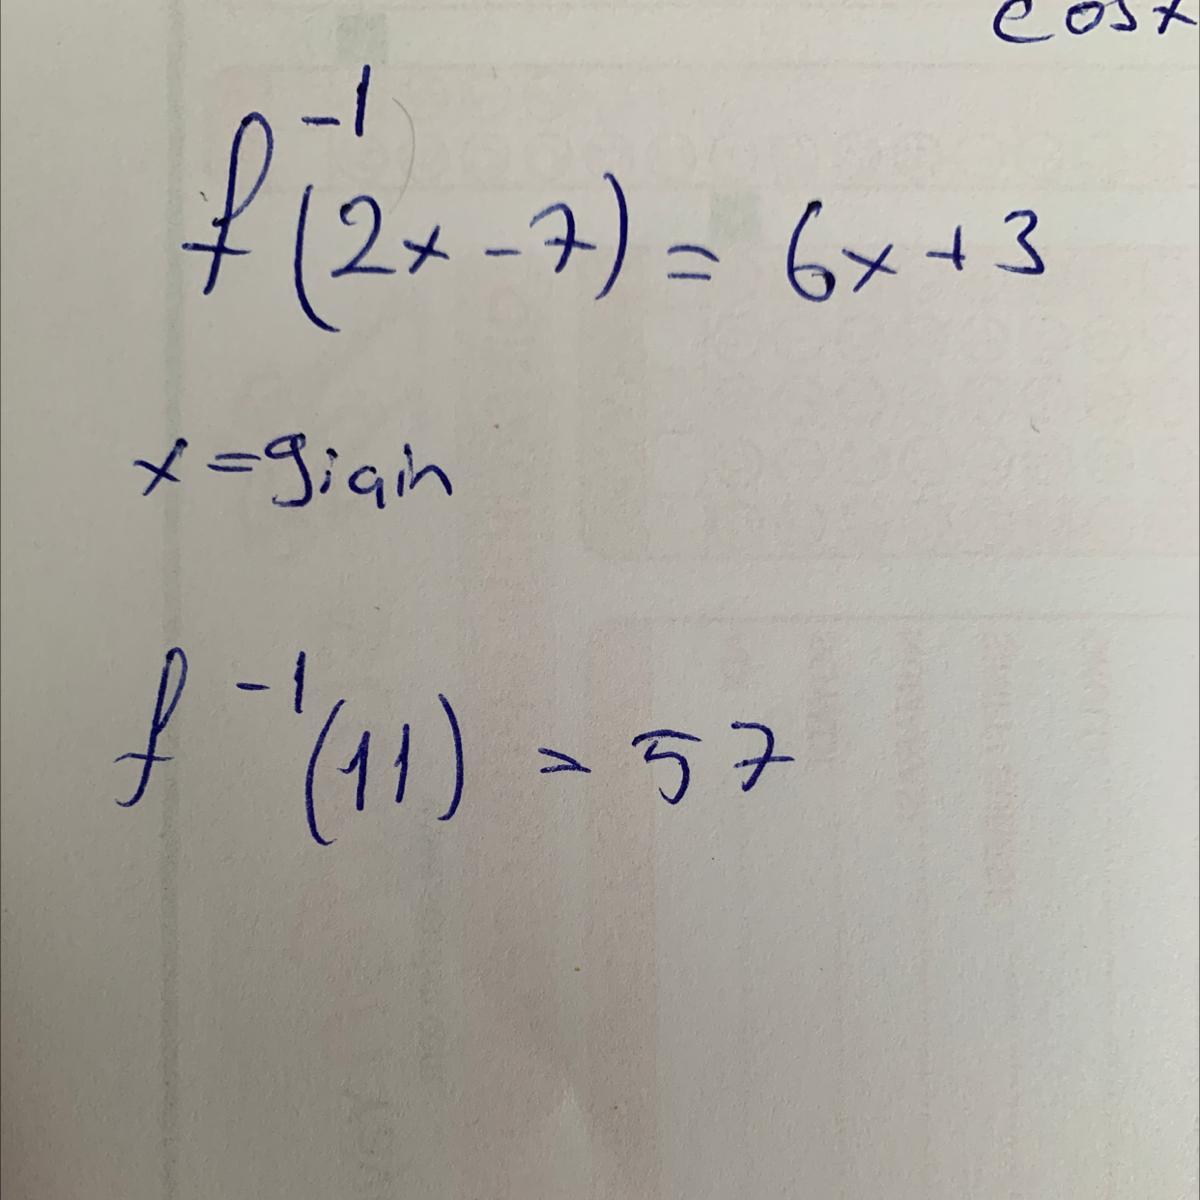 cosx
f⁻¹(2x-7) = 6x+3
x=9 için
f⁻¹(11) = 57